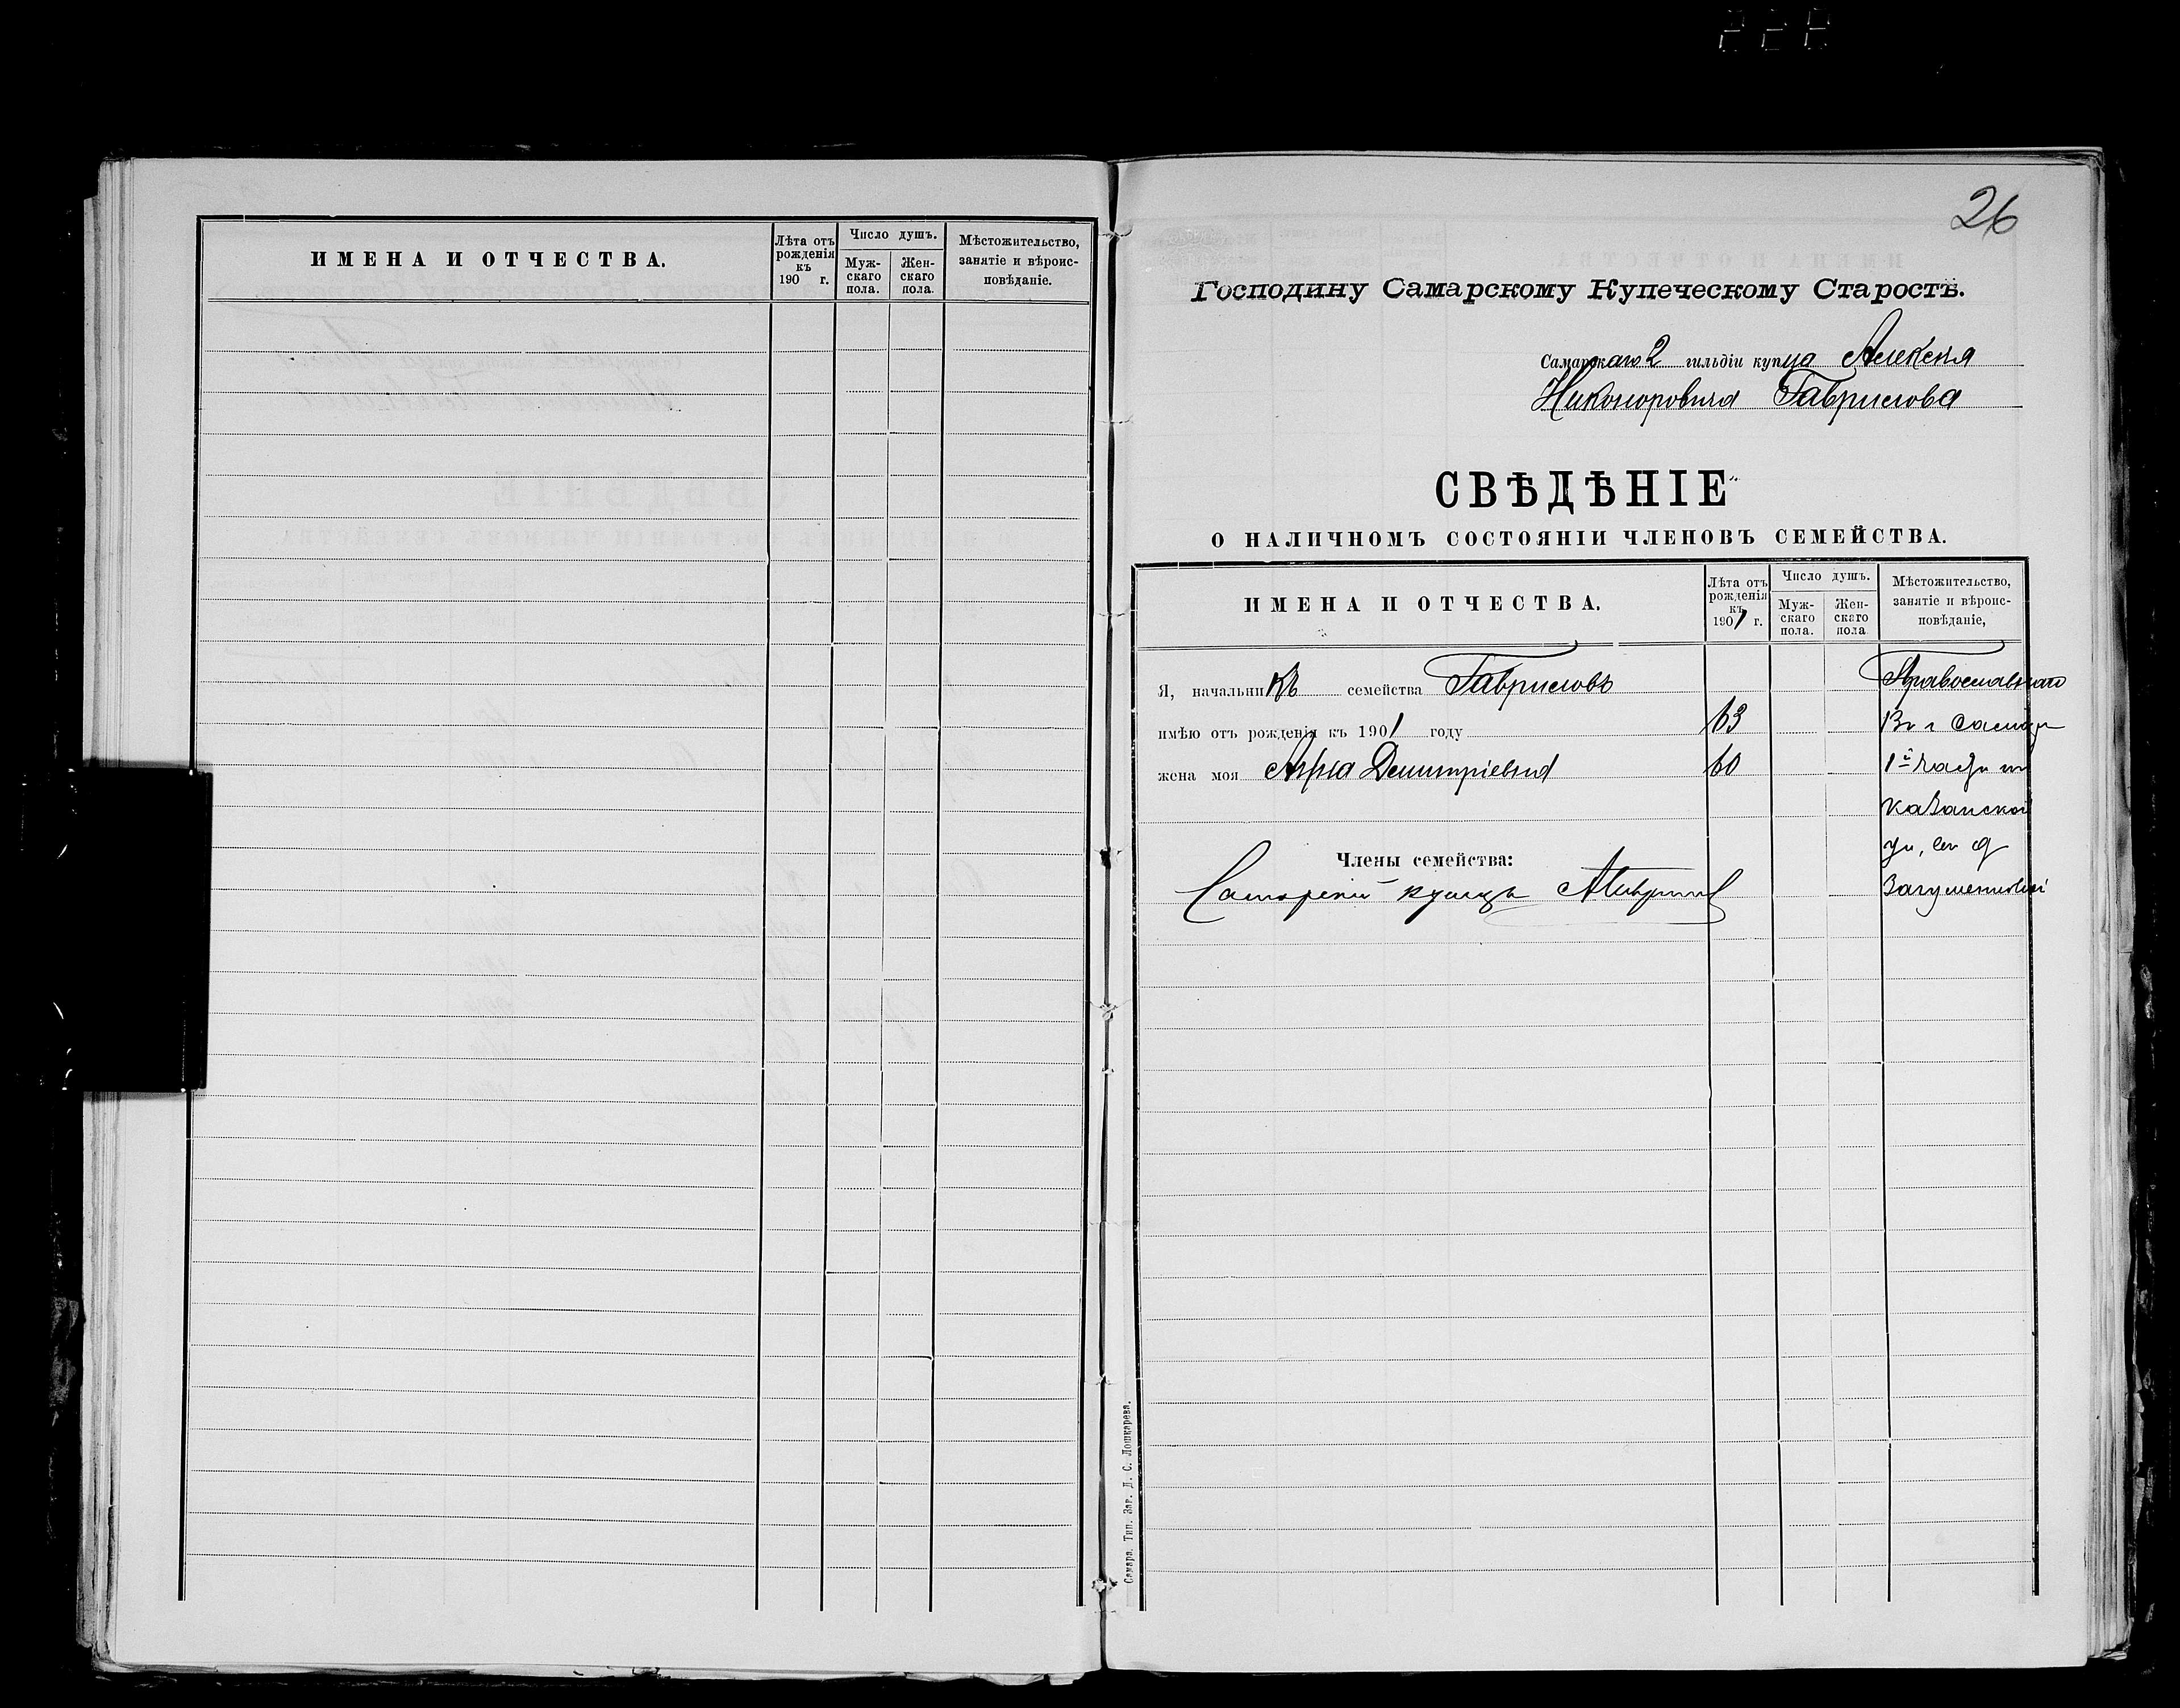 ИМЕНА И ОТЧЕСТВА.
Лѣта отъ рожденія къ 190 г.
Число душъ.
Мужскаго пола.
Женскаго пола.
Мѣстожительство, занятіе и вѣроисповѣданіе.
26
Господину Самарскому Купеческому Старостѣ.
Самарскаго 2 гильдіи купца Алексѣя
Никоноровича Гаврилова
СВѢДѢНІЕ
О НАЛИЧНОМЪ СОСТОЯНІИ ЧЛЕНОВЪ СЕМЕЙСТВА.
ИМЕНА И ОТЧЕСТВА.
Лѣта отъ рожденія къ 1901 г.
Число душъ.
Мужскаго пола.
Женскаго пола
Мѣстожительство, занятіе и вѣроисповѣданіе,
Я, начальникъ семейства Гавриловъ Православнаго
имѣю отъ рожденія къ 1901 году 63 Въ г Самарѣ
жена моя Дмитріевна 60 1й части
Казанской
ул,
Члены семейства:
Самарскій купецъ
Самара. Тип. Заг. Д. С. Лошкарева.